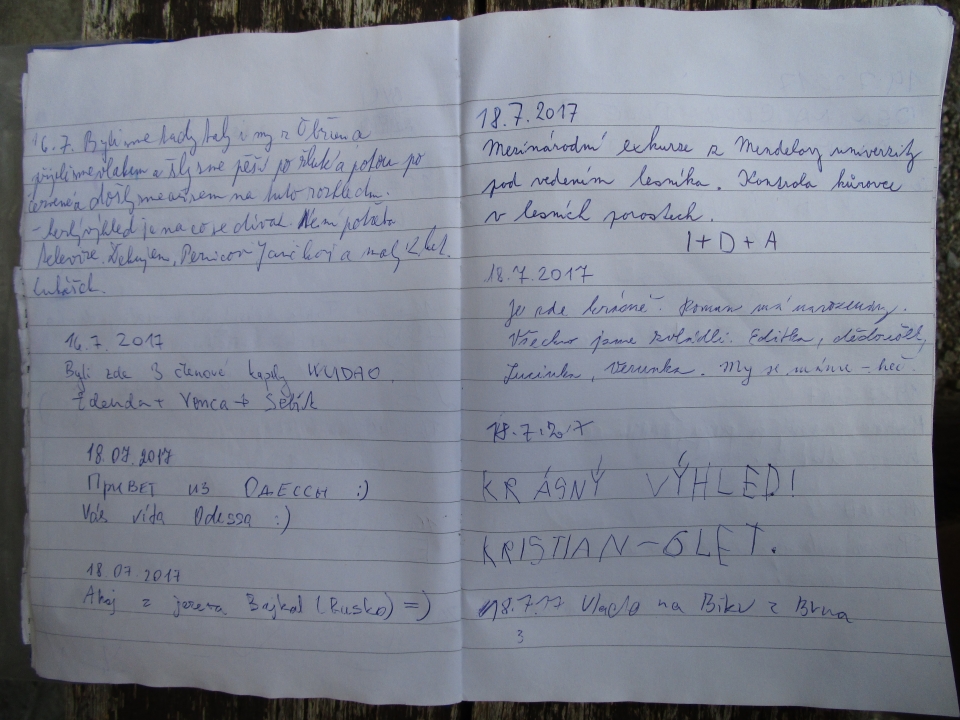 16.7. Byli sme tady taky i my z Obřan a
přijeli sme vlakem a šly sme pěší po žluté a potom po
červené a došly sme na tuto rozhlednu.
výhled je na co se dívat. Není potřeba
televize. Děkujem, a malý
16.7.2017
Byli zde 3 členové kapely WUDAO.
Zdenda + Venca + Sebík
18.07.2017
ПРИВЕТ ИЗ ОДЕССЫ :)
Vás vítá Odessa :)
18.07.2017
Ahoj z jezera Bajkal (Rusko) =)
18.7.2017
Mezinárodní exkurze z Mendelovy univerzity
pod vedením lesníka. Kontrola kůrovce
v lesních porostech.
I + D + A
18.7.2017
Je zde krásně. Roman má narozeniny.
Všechno jsme zvládli. Editka, dědoušek,
Lucinka, Verunka. My se máme – heč.
18.7.2017
KRÁSNÝ VÝHLED!
KRISTIAN – 6 LET.
18.7.17 Vlado na Biku z Brna
3